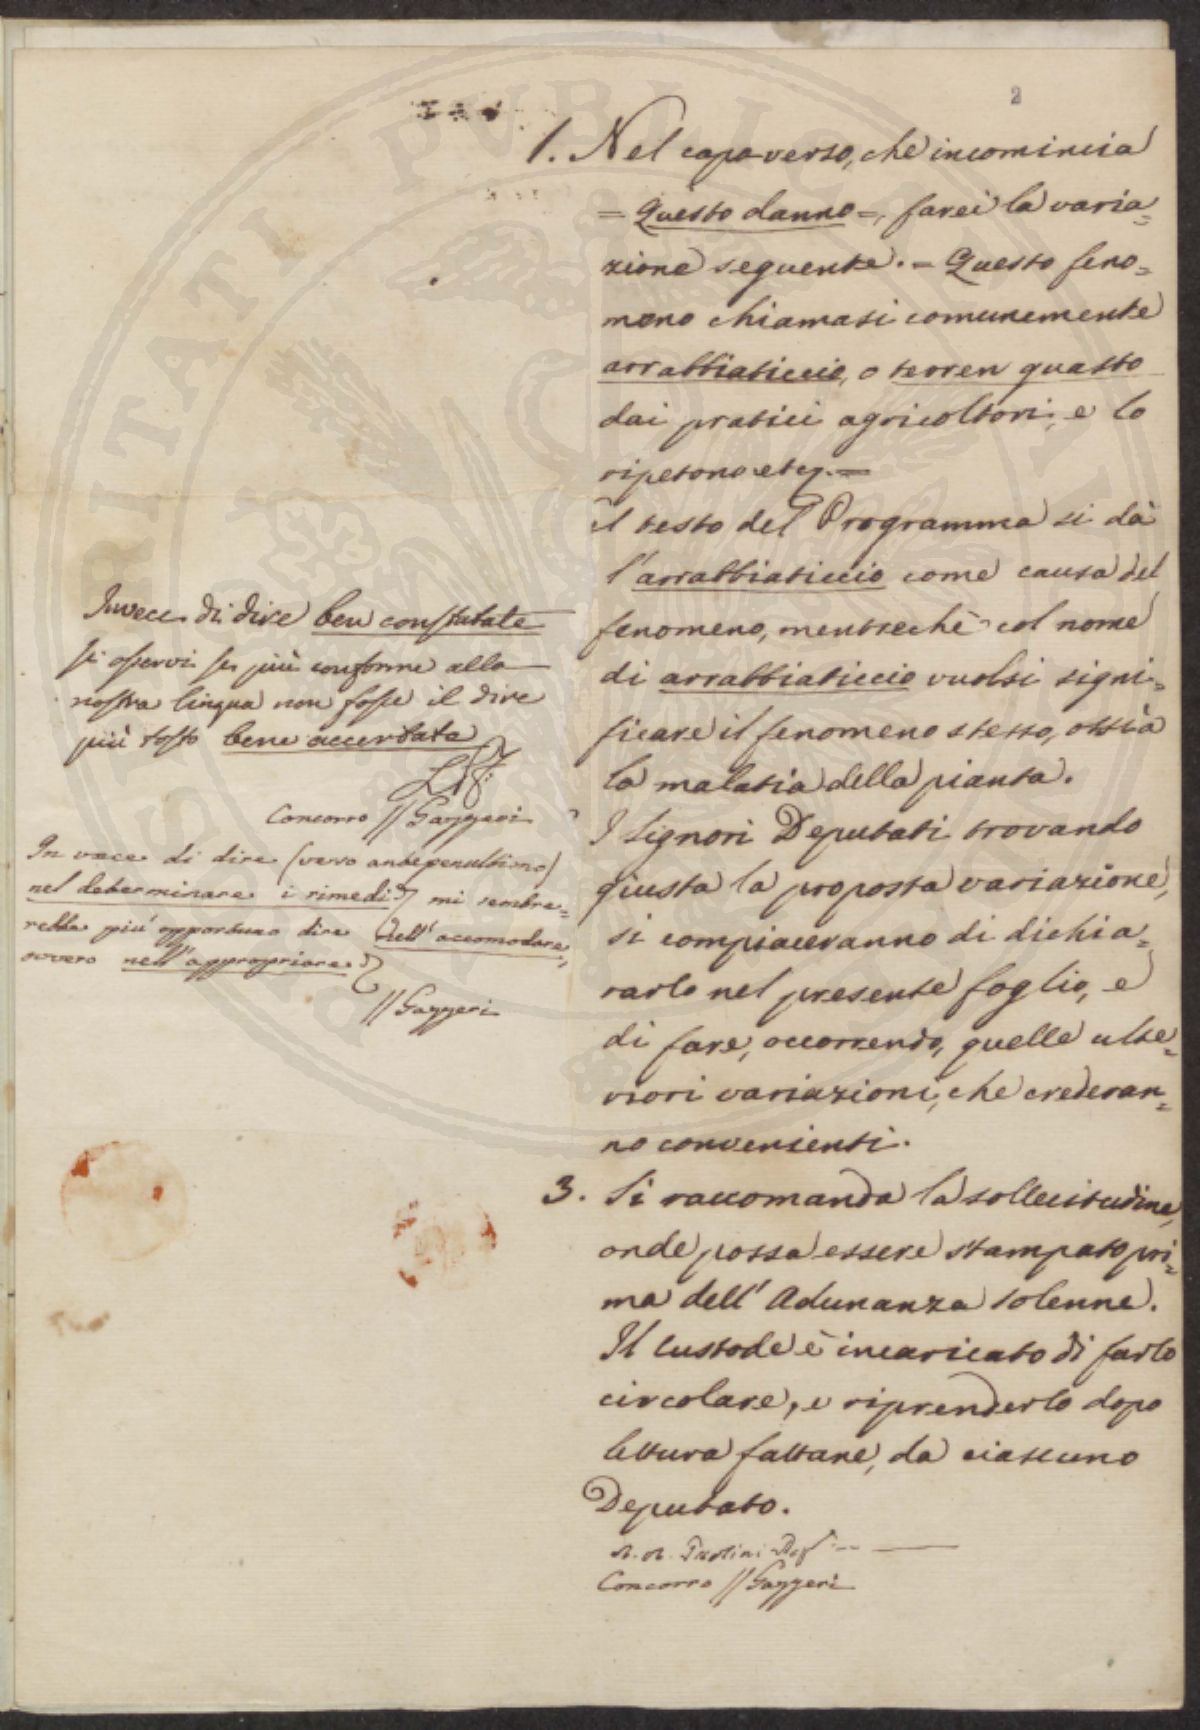 2
1. Nel capoverso, che incomincia
= Questo danno =, farei la varia=
zione seguente. = Questo feno=
meno chiamasi comunemente
arrabbiaticcio, o terren guasto
dai pratici agricoltori, e lo
ripetono etc. =
il testo del Programma si dà
l'arrabbiaticcio come causa del
fenomeno, mentrechè col nome
di arrabbiaticcio vuolsi signi=
ficare il fenomeno stesso, ossia
la malatia della pianta.
I Signori Deputati trovando
giusta la proposta variazione,
si compiaceranno di dichia=
rarlo nel presente foglio, e
di fare, occorrendo, quelle ulte=
riori variazioni, che crederan=
no convenienti.
3. Si raccomanda la sollecitudine,
onde possa essere stampato pri=
ma dell' Adunanza solenne.
Il Custode è incaricato di farlo
circolare, e riprenderlo dopo
lettura fattane, da ciascuno
Deputato.
Paolini
Concorro // Gazzeri
Invece di dire ben constatata
si osservi se più conforme alla
nostra lingua non fosse il dire
più tosto bene accertata
Concorro // Gazzeri
In vece di dire (verso antepenultimo)
nel determinare i rimedi mi sembre=
rebbe piu' opportuno dire nell' accomodare,
ovvero nell' appropriare
// Gazzeri
PUBLICAE